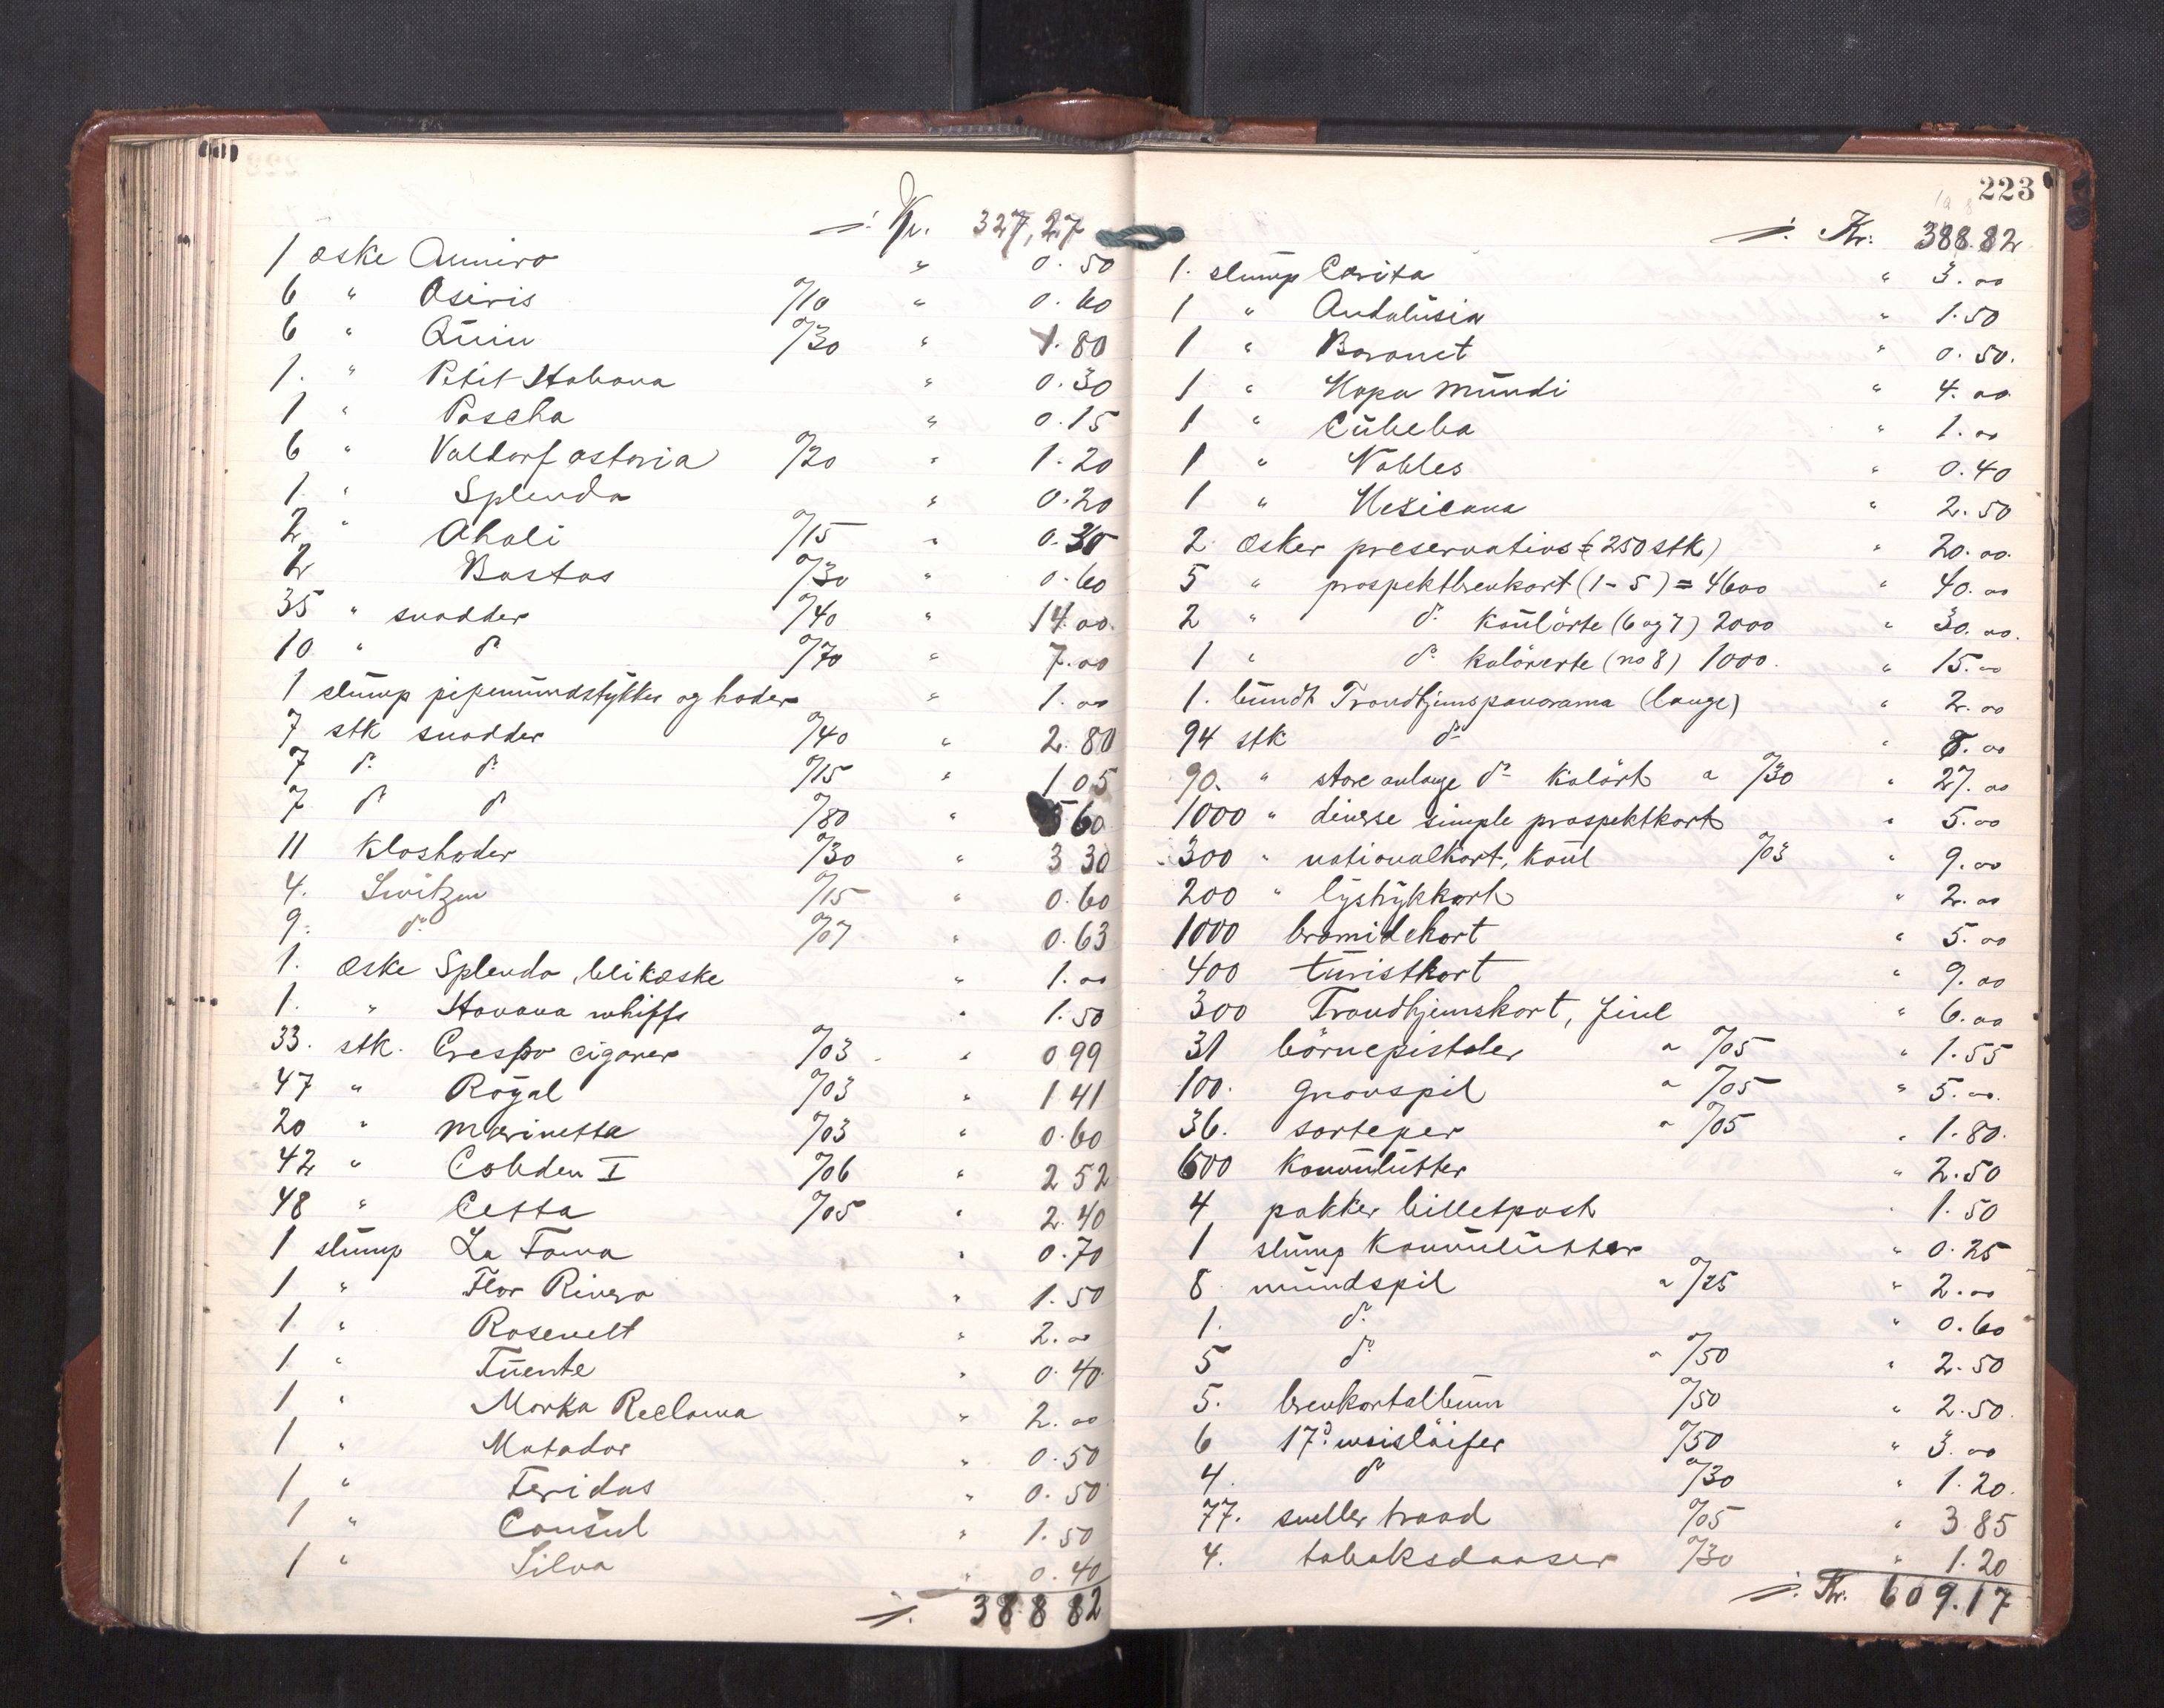 ÷ Kr. 327,27
1 æske Amiro " 0.50
6 " Osiris %10 " 0.60
6 " Quin %30 " 1.80
1. " Petit Habana " 0.30
1 " Pascha " 0.15
6 " Valdorf astoria %20 " 1.20
1 " Splenda " 0.20
2 " Ahali %15 " 0.30
2 Bastos %30 " 0.60
35 " snadder %40 " 14.00
10 " do %70 " 7.00
1 slump pipemundstykker og hoder " 1.00
7 stk snadder %40 " 2.80
7 do do %15 " 1 05
7 do do %80 " 5 60
11 kloshoder %30 " 3 30
4. Switzen %15 " 0.60
9. do %07 " 0.63
1. æske Splenda, blikæske " 1.00
1. " Havana whiffs " 1.50
33. stk. Crespo cigarer %03 " 0 99
47 " Royal %03 " 1 41
20 " Marinetta %03 " 0.60
42 " Cobden I %06 " 2 52
48 " Cetta %05 " 2.40
1 slump La Fama " 0.70
1 " Flor Rivero " 1.50
1 " Rosevelt " 2.00
1 " Fuente " 0.40
1 " Marka Reclama " 2.00
1 " Matador " 0.50
1 " Feridas " 0.50
1 " Consul " 1.50
1 " Silva " 0.40
÷ 388 82
223
÷ Kr: 388.82
1. slump Carita " 3.00
1 " Andalusia " 1.50
1 " Baronet " 0.50.
1 " Mapa Mundi " 4.00
1 " Cubeba " 1.00
1 " Nobles " 0.40
1 " Mexicana " 2.50
2 æsker preservativs (=250 stk) " 20.00
5 " prospektbrevkort (1-5) = 4600 " 40.00
2 " do kulörte (6 og 7) 2000 " 30.00.
1 " do kulörerte (no 8) 1000. " 15.00
1. bundt Trondhjemspanorama (lange) " 2.00
94 stk do " 8.00
90. " store anlage do kulört a %30 " 27.00
1000 " diverse simple prospektkort " 5.00
300 " nationalkort, koul %03 " 9.00
200 " lystrykkort " 2.00
1000 bromidekort " 5.00
400 turistkort " 9.00
300 Trondhjemskort, Jiul " 6.00
31 börnepistoler a %05 " 1.55
100. gnavspil a %05 " 5.00.
36. sorteper " %05 " 1.80.
600 konvolutter " 2.50
4 pakker billetpost " 1.50
1 slump konvolutter " 0.25
8 mundspil a %25 " 2.00
1. do " 0.60
5 do " %50 " 2.50
5. brevkortalbum %50 " 2.50.
6 17d. maislöifer %50 " 3.00
4. do %30 " 1.20.
77. sneller traad %05 " 3 85
4. tobaksdaaser %30 " 1.20
÷ Kr. 609.17